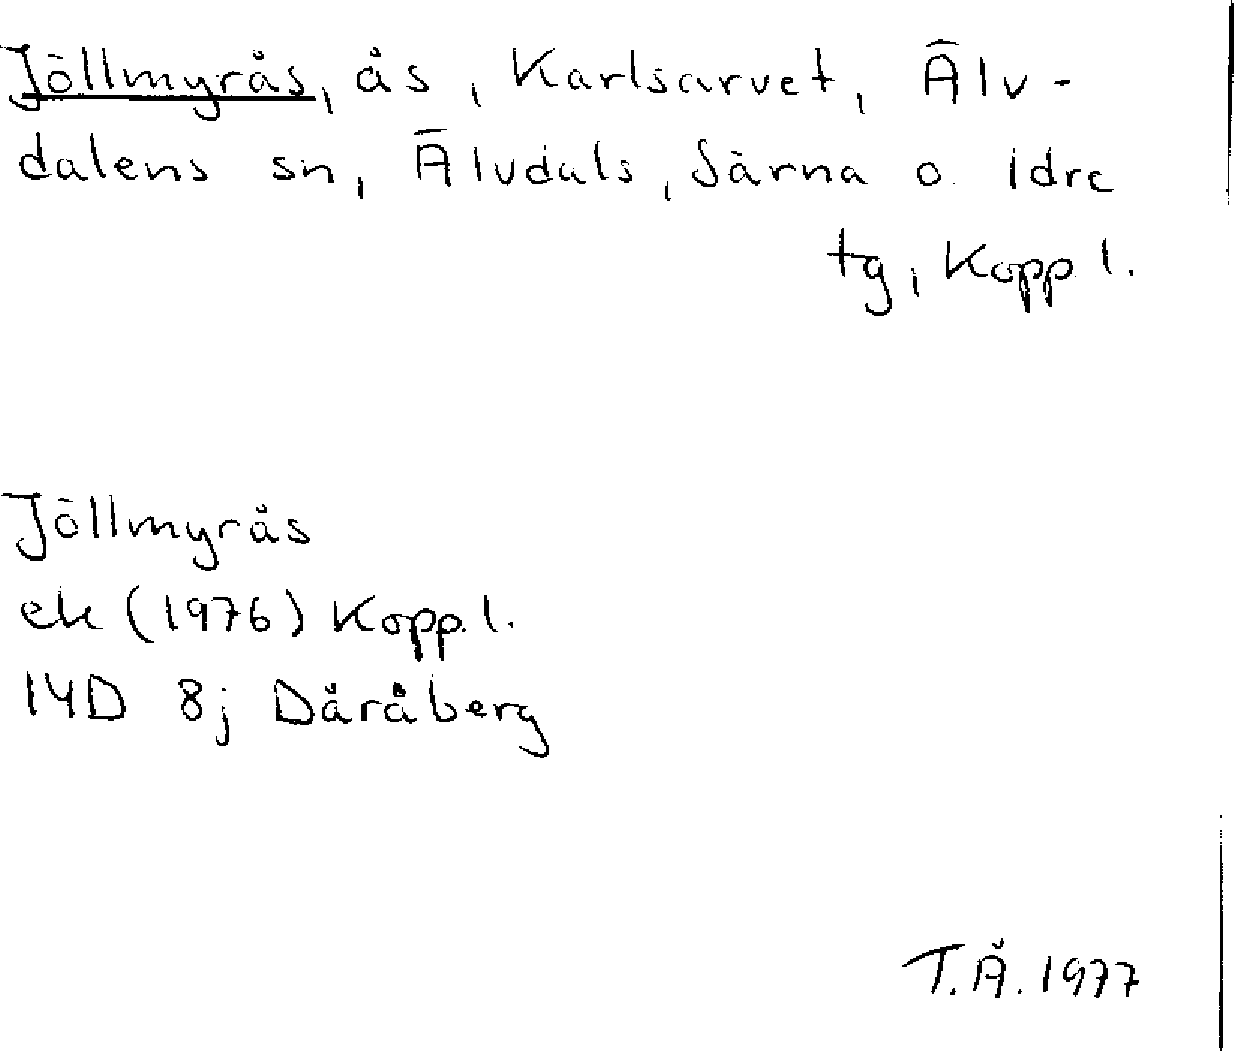 Jöllmyrås, ås, Karlsarvet, Älv-
dalens sn, Älvdals, Särna o. Idre
tg, Kopp.l.
Jöllmyrås
ek (1976) Kopp.l.
14D 8j Dåråberg
T.Å. 1977